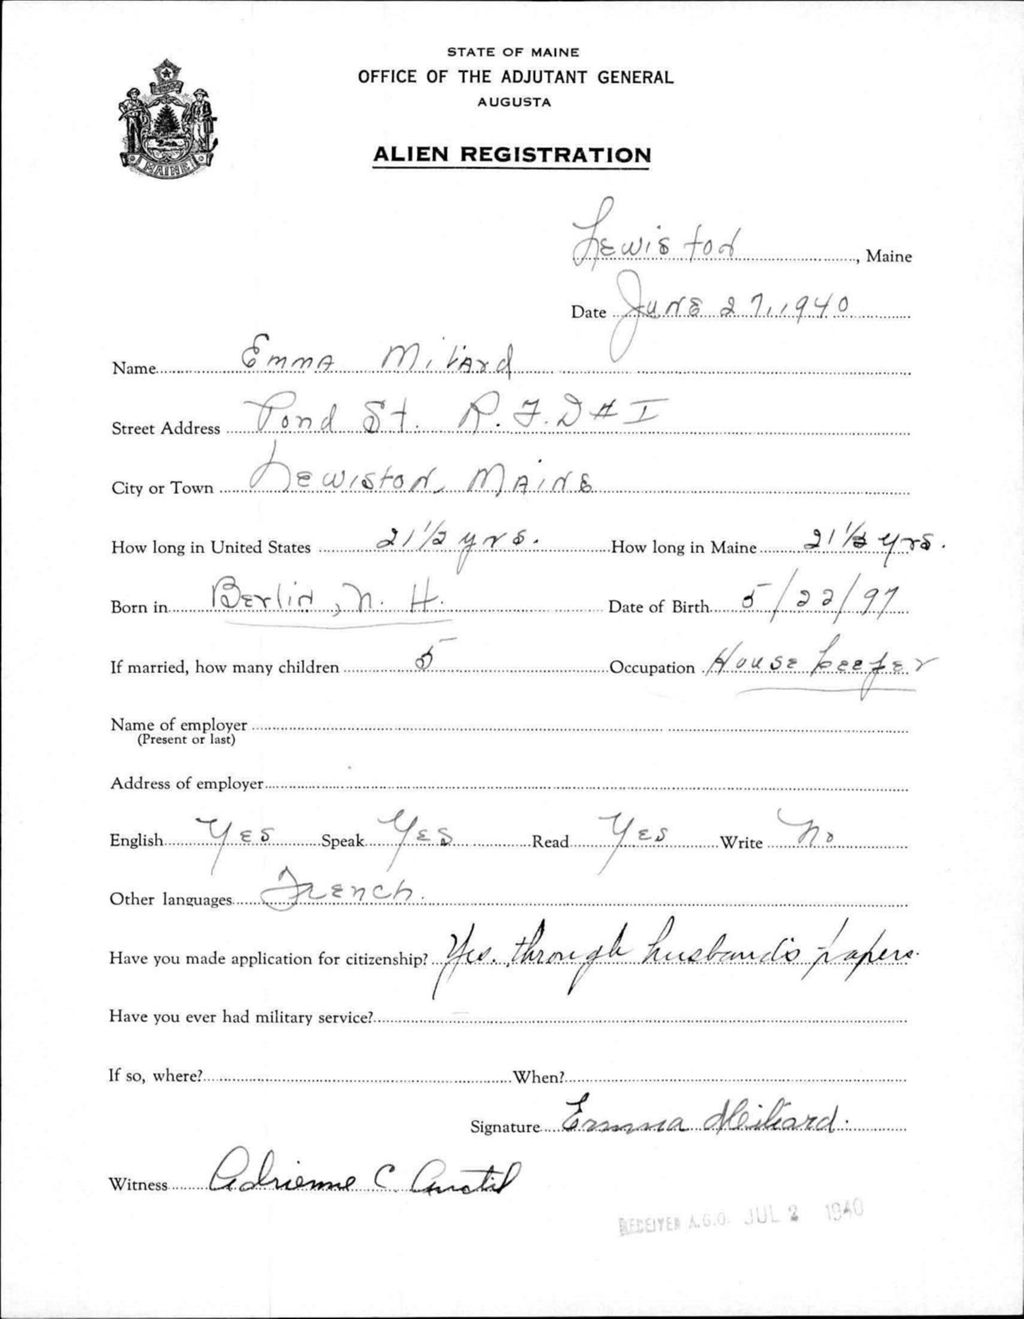 STATE OF MAINE
OFFICE OF THE ADJUTANT GENERAL
AUGUSTA
ALIEN REGISTRATION
MAINE
Lewiston, Maine
Date June 27, 1940
Name Emma Miliard
Street Address Pond St. R.F.D # I
City or Town Lewiston, Maine
How long in United States 21 1/2 yrs. How long in Maine 21 1/2 yrs.
Born in Berlin, N. H. Date of Birth 5/22/97
If married, how many children 5 Occupation House keeper
Name of employer
(Present or last)
Address of employer
English Yes Speak Yes Read Yes Write No
Other languages French.
Have you made application for citizenship? Yes. through husband's papers.
Have you ever had military service?
If so, where? When?
Signature Emma Miliard.
Witness Adrienne C. Anctil
RECEIVED A.G.O. JUL 2 1940